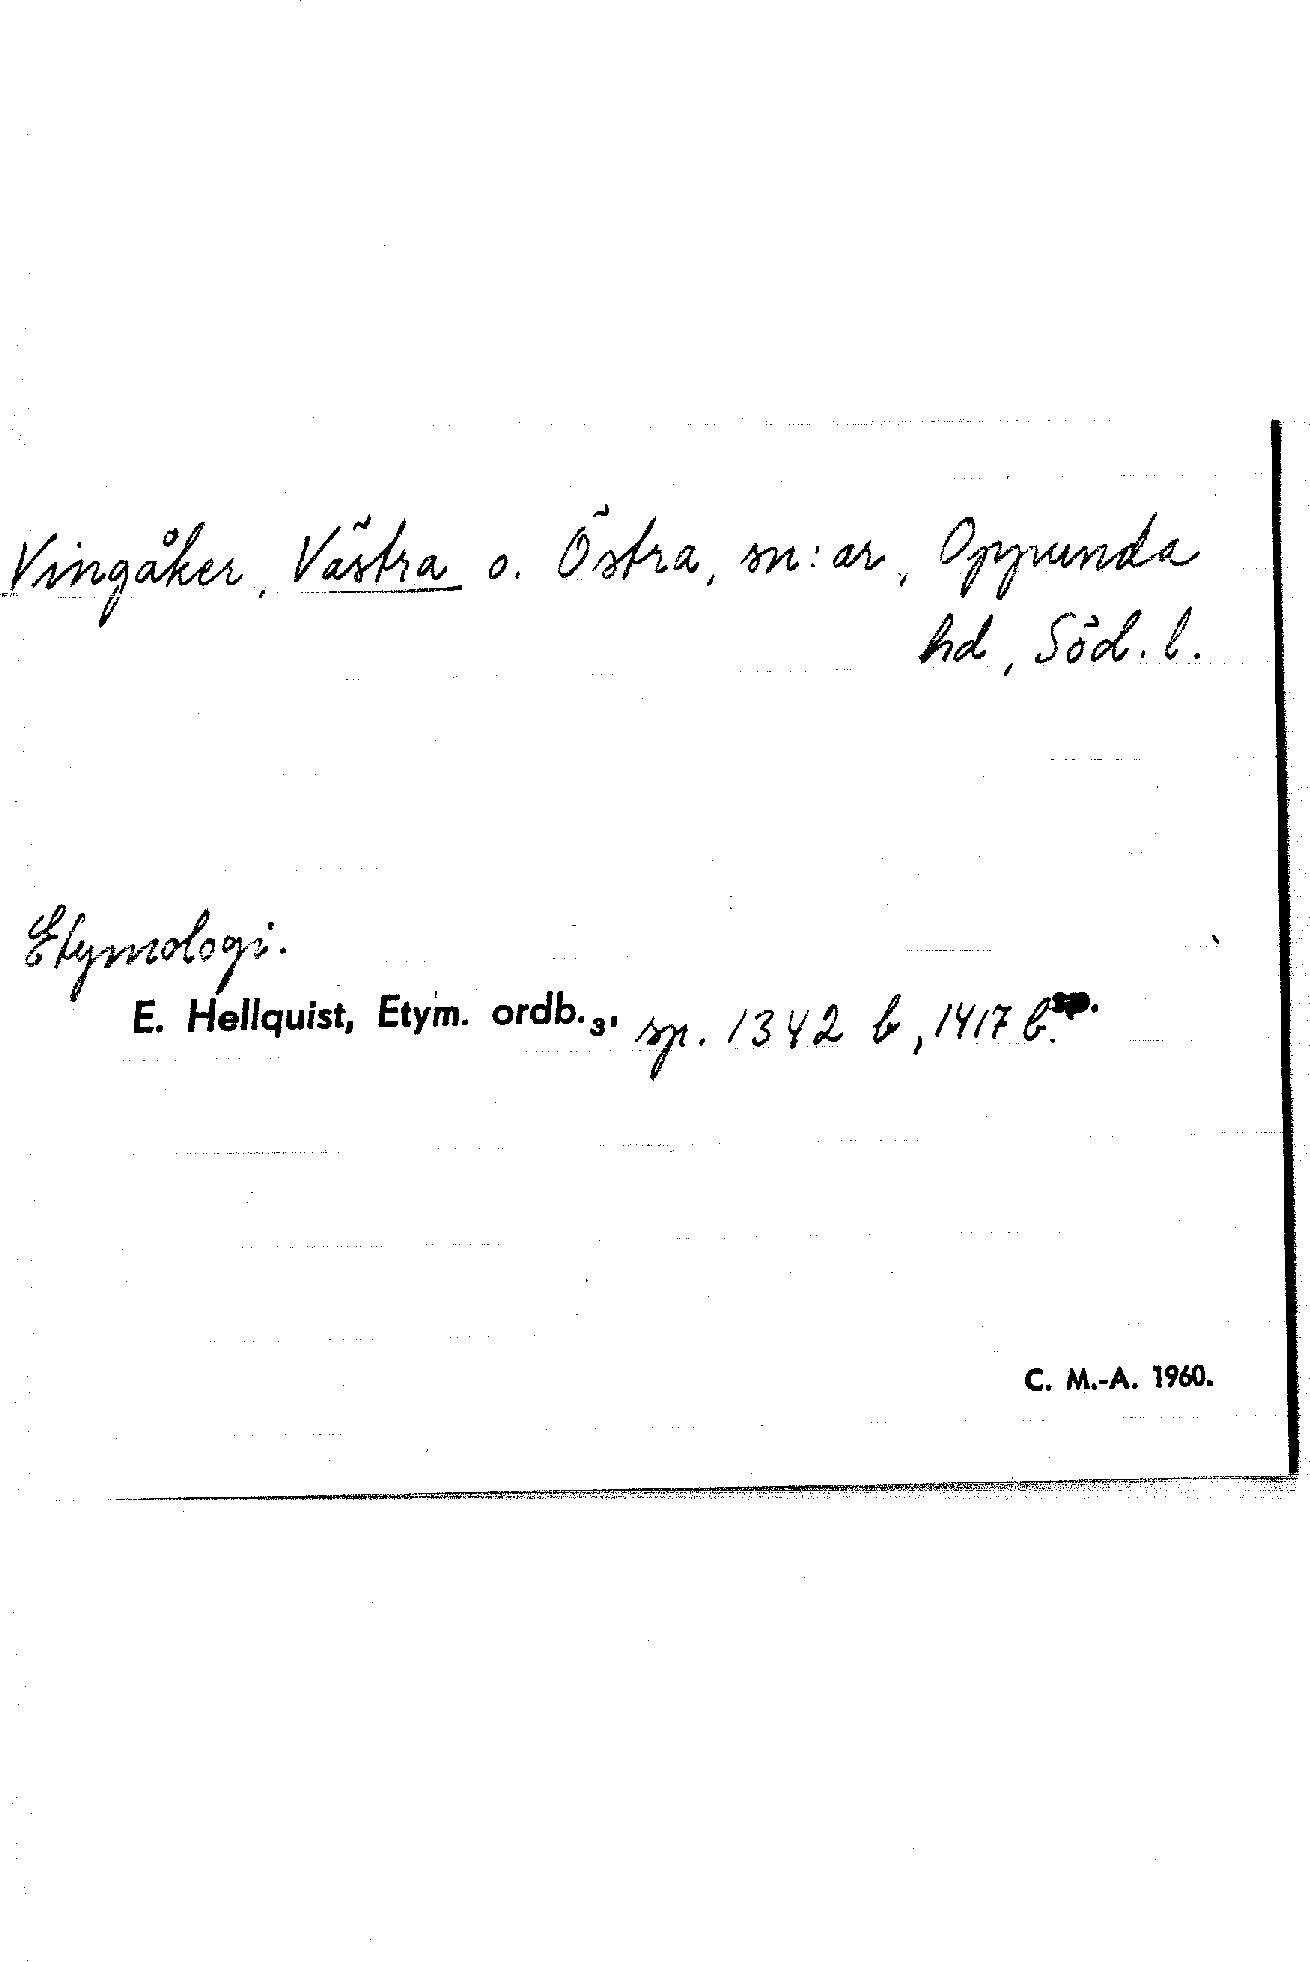 Vingåker, Västra o. Östra, sn:ar, Oppunda
hd, Söd. l.
Etymologi.
E. Hellquist, Etym. ordb.₃, sp. 1342 b, 1417 b. sp.
C. M.-A. 1960.